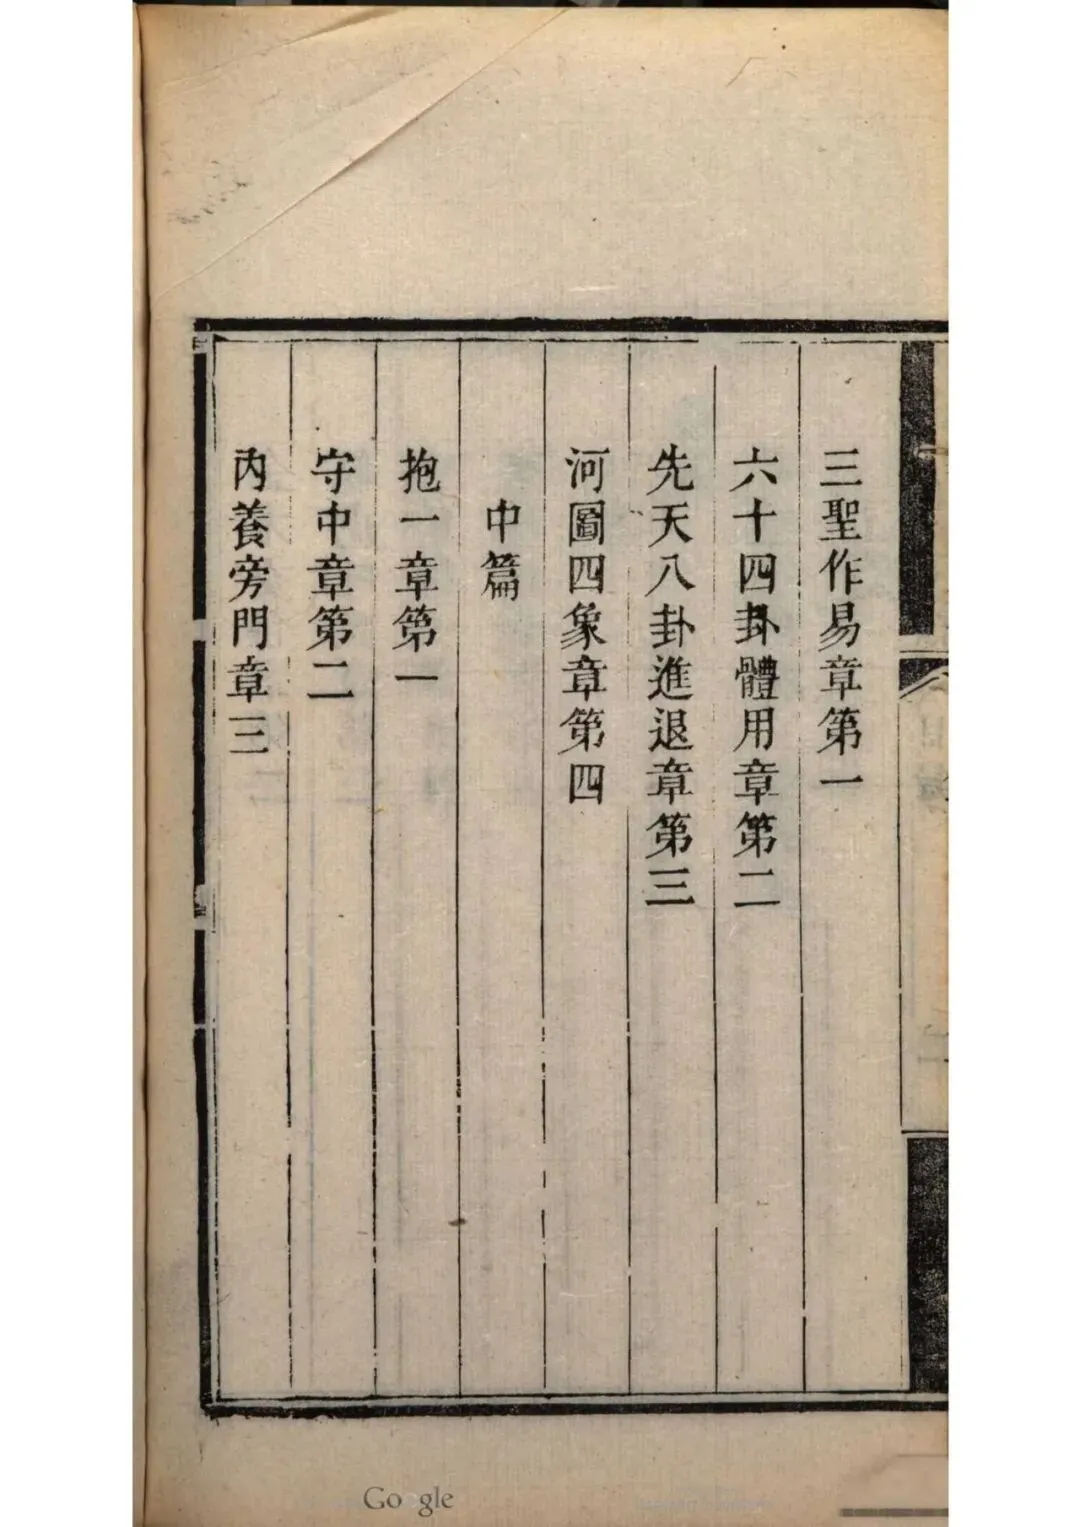 三聖作易章第一
六十四卦體用章第二
先天八卦進退章第三
河圖四象章第四
中篇
抱一章第一
守中章第二
內養旁門章三
Google